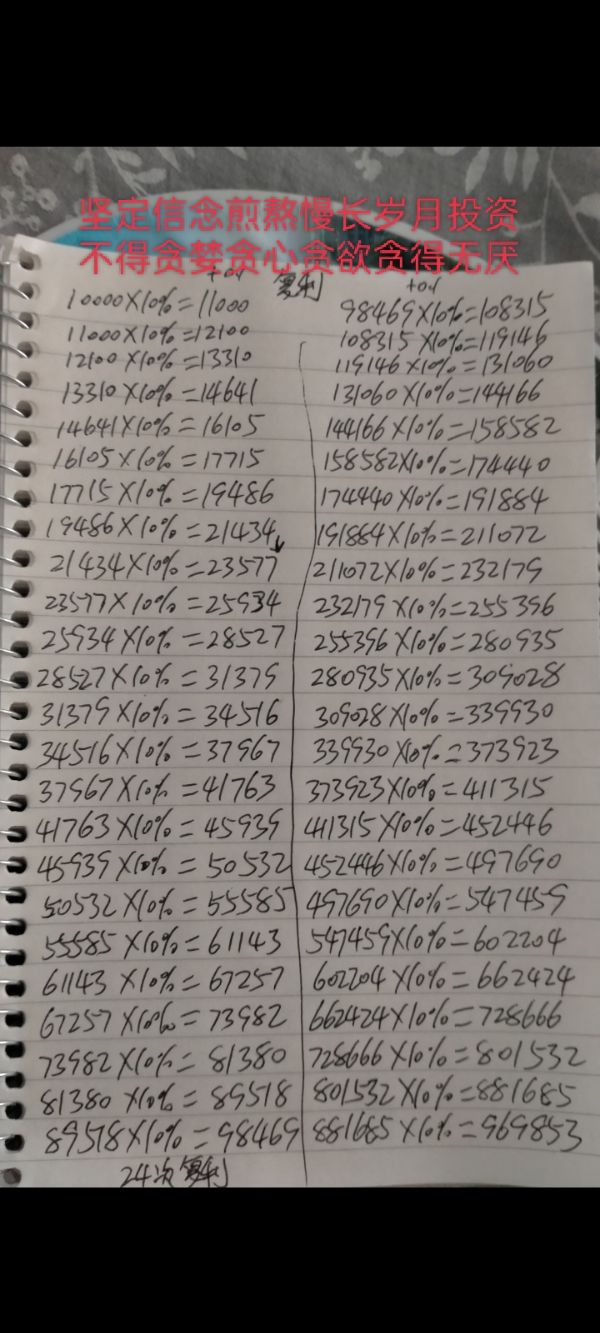 坚定信念煎熬慢长岁月投资
不得贪婪贪心贪欲贪得无厌
复利
10000×10%=11000
11000×10%=12100
12100×10%=13310
13310×10%=14641
14641×10%=16105
16105×10%=17715
17715×10%=19486
19486×10%=21434
21434×10%=23577
23577×10%=25934
25934×10%=28527
28527×10%=31379
31379×10%=34516
34516×10%=37967
37967×10%=41763
41763×10%=45939
45939×10%=50532
50532×10%=55585
55585×10%=61143
61143×10%=67257
67257×10%=73982
73982×10%=81380
81380×10%=89518
89518×10%=98469
24次复利
98469×10%=108315
108315×10%=119146
119146×10%=131060
131060×10%=144166
144166×10%=158582
158582×10%=174440
174440×10%=191884
191884×10%=211072
211072×10%=232179
232179×10%=255396
255396×10%=280935
280935×10%=309028
309028×10%=339930
339930×10%=373923
373923×10%=411315
411315×10%=452446
452446×10%=497690
497690×10%=547459
547459×10%=602204
602204×10%=662424
662424×10%=728666
728666×10%=801532
801532×10%=881685
881685×10%=969853